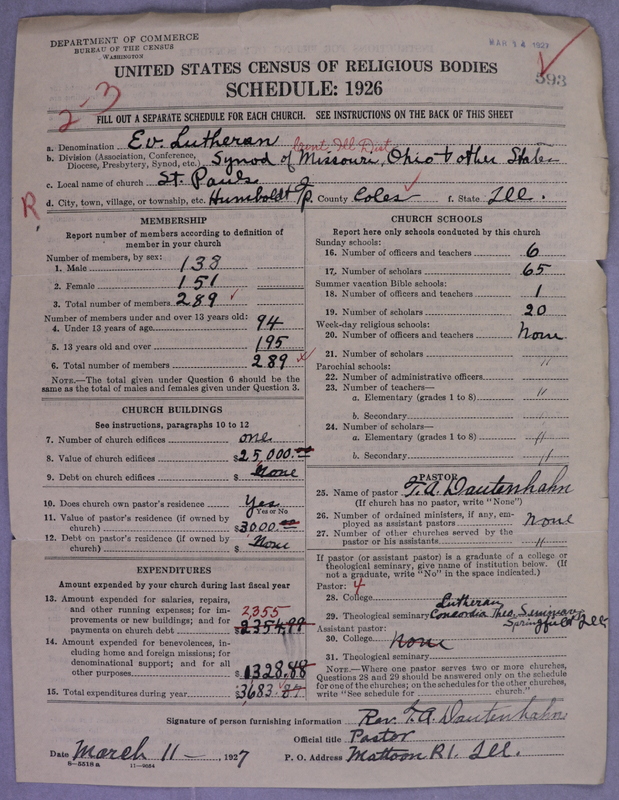 DEPARTMENT OF COMMERCE
BUREAU OF THE CENSUS
WASHINGTON
MAR 14 1927
593
UNITED STATES CENSUS OF RELIGIOUS BODIES
SCHEDULE: 1926
2-3
FILL OUT A SEPARATE SCHEDULE FOR EACH CHURCH. SEE INSTRUCTIONS ON THE BACK OF THIS SHEET
a. Denomination Ev. Lutheran Cent. Ill Dist.
b. Division (Association, Conference, Diocese, Presbytery, Synod, etc.) Synod of Missouri, Ohio & other States
c. Local name of church St. Pauls
R
d. City, town, village, or township, etc. Humboldt County Coles f. State Ill.
MEMBERSHIP
Report number of members according to definition of
member in your church
Number of members, by sex:
1. Male 138
2. Female 151
3. Total number of members 289
Number of members under and over 13 years old:
4. Under 13 years of age 94
5. 13 years old and over 195
6. Total number of members 289
NOTE.—The total given under Question 6 should be the
same as the total of males and females given under Question 3.
CHURCH BUILDINGS
See instructions, paragraphs 10 to 12
7. Number of church edifices one
8. Value of church edifices $25,000.00
9. Debt on church edifices $ None
10. Does church own pastor's residence Yes
Yes or No
11. Value of pastor's residence (if owned by
church) $3000.00
12. Debt on pastor's residence (if owned by
church) $ None
EXPENDITURES
Amount expended by your church during last fiscal year
13. Amount expended for salaries, repairs,
and other running expenses; for im-
provements or new buildings; and for
payments on church debt 2355 $2354.99
14. Amount expended for benevolences, in-
cluding home and foreign missions; for
denominational support; and for all
other purposes $1328.88
15. Total expenditures during year $3683.87
CHURCH SCHOOLS
Report here only schools conducted by this church
Sunday schools:
16. Number of officers and teachers 6
17. Number of scholars 65
Summer vacation Bible schools:
18. Number of officers and teachers 1
19. Number of scholars 20
Week-day religious schools:
20. Number of officers and teachers None
21. Number of scholars "
Parochial schools:
22. Number of administrative officers
23. Number of teachers—
a. Elementary (grades 1 to 8) "
b. Secondary "
24. Number of scholars—
a. Elementary (grades 1 to 8) "
b. Secondary "
PASTOR
25. Name of pastor F. A. Dautenhahn
(If church has no pastor, write "None")
26. Number of ordained ministers, if any, em-
ployed as assistant pastors None
27. Number of other churches served by the
pastor or his assistants "
If pastor (or assistant pastor) is a graduate of a college or
theological seminary, give name of institution below. (If
not a graduate, write "No" in the space indicated.)
Pastor: 4
28. College
29. Theological seminary Lutheran Concordia Theo. Seminary Springfield Ill.
Assistant pastor:
30. College None
31. Theological seminary
NOTE.—Where one pastor serves two or more churches,
Questions 28 and 29 should be answered only on the schedule
for one of the churches; on the schedules for the other churches,
write "See schedule for church."
Signature of person furnishing information Rev. F. A. Dautenhahn
Official title Pastor
Date March 11 - , 1927 P. O. Address Mattoon R1. Ill.
8-5518 a 11-9054